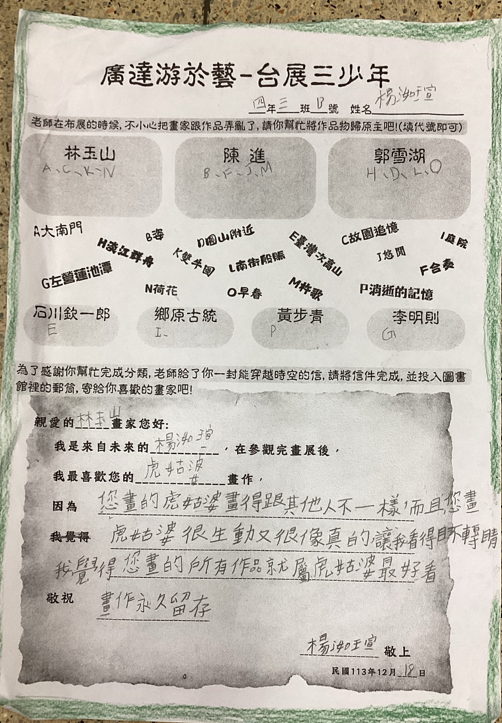 廣達游於藝-台展三少年
四年三班 號 姓名 楊洳瑄
老師在布展的時候,不小心把畫家跟作品弄亂了,請你幫忙將作品物歸原主吧!(填代號即可)
林玉山 陳進 郭雪湖
A、C、K、N B、F、J、M H、D、L、O
A大南門 B姿 D圓山附近 E臺灣次高山 C故園追憶 I庭院
H淡江群舟 K雙牛圖 L南街殷賑 J悠閒 F合奏
G左營蓮池潭 N荷花 O早春 M杵歌 P消逝的記憶
石川欽一郎 鄉原古統 黃步青 李明則
E I P G
為了感謝你幫忙完成分類,老師給了你一封能穿越時空的信,請將信件完成,並投入圖書
館裡的郵筒,寄給你喜歡的畫家吧!
親愛的林玉山畫家您好:
我是來自未來的楊洳瑄,在參觀完畫展後,
我最喜歡您的虎姑婆畫作,
因為 您畫的虎姑婆畫得跟其他人不一樣,而且您畫
我覺得 虎姑婆很生動又很像真的讓我看得目不轉睛
我覺得您畫的所有作品就屬虎姑婆最好看
敬祝 畫作永久留存
楊洳瑄 敬上
民國113年12月18日